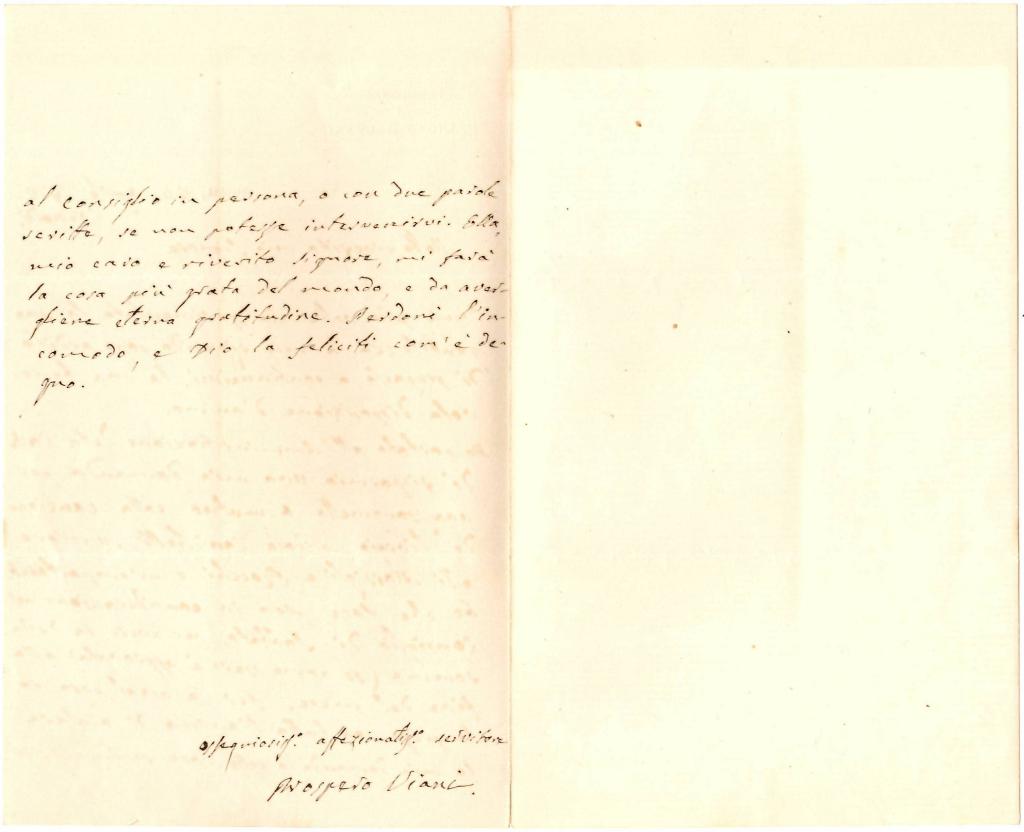 al consiglio in persona, o con due parole
scritte, se non potesse intervenirvi. Ella,
mio caro e riverito Signore, mi farà
la cosa più grata del mondo, e da aver-
gliene eterna gratitudine. Perdoni l'in-
comodo, e Dio la feliciti com'è de-
gno.
ossequiosiss.º affezionatiss.º servitore
Prospero Viani.